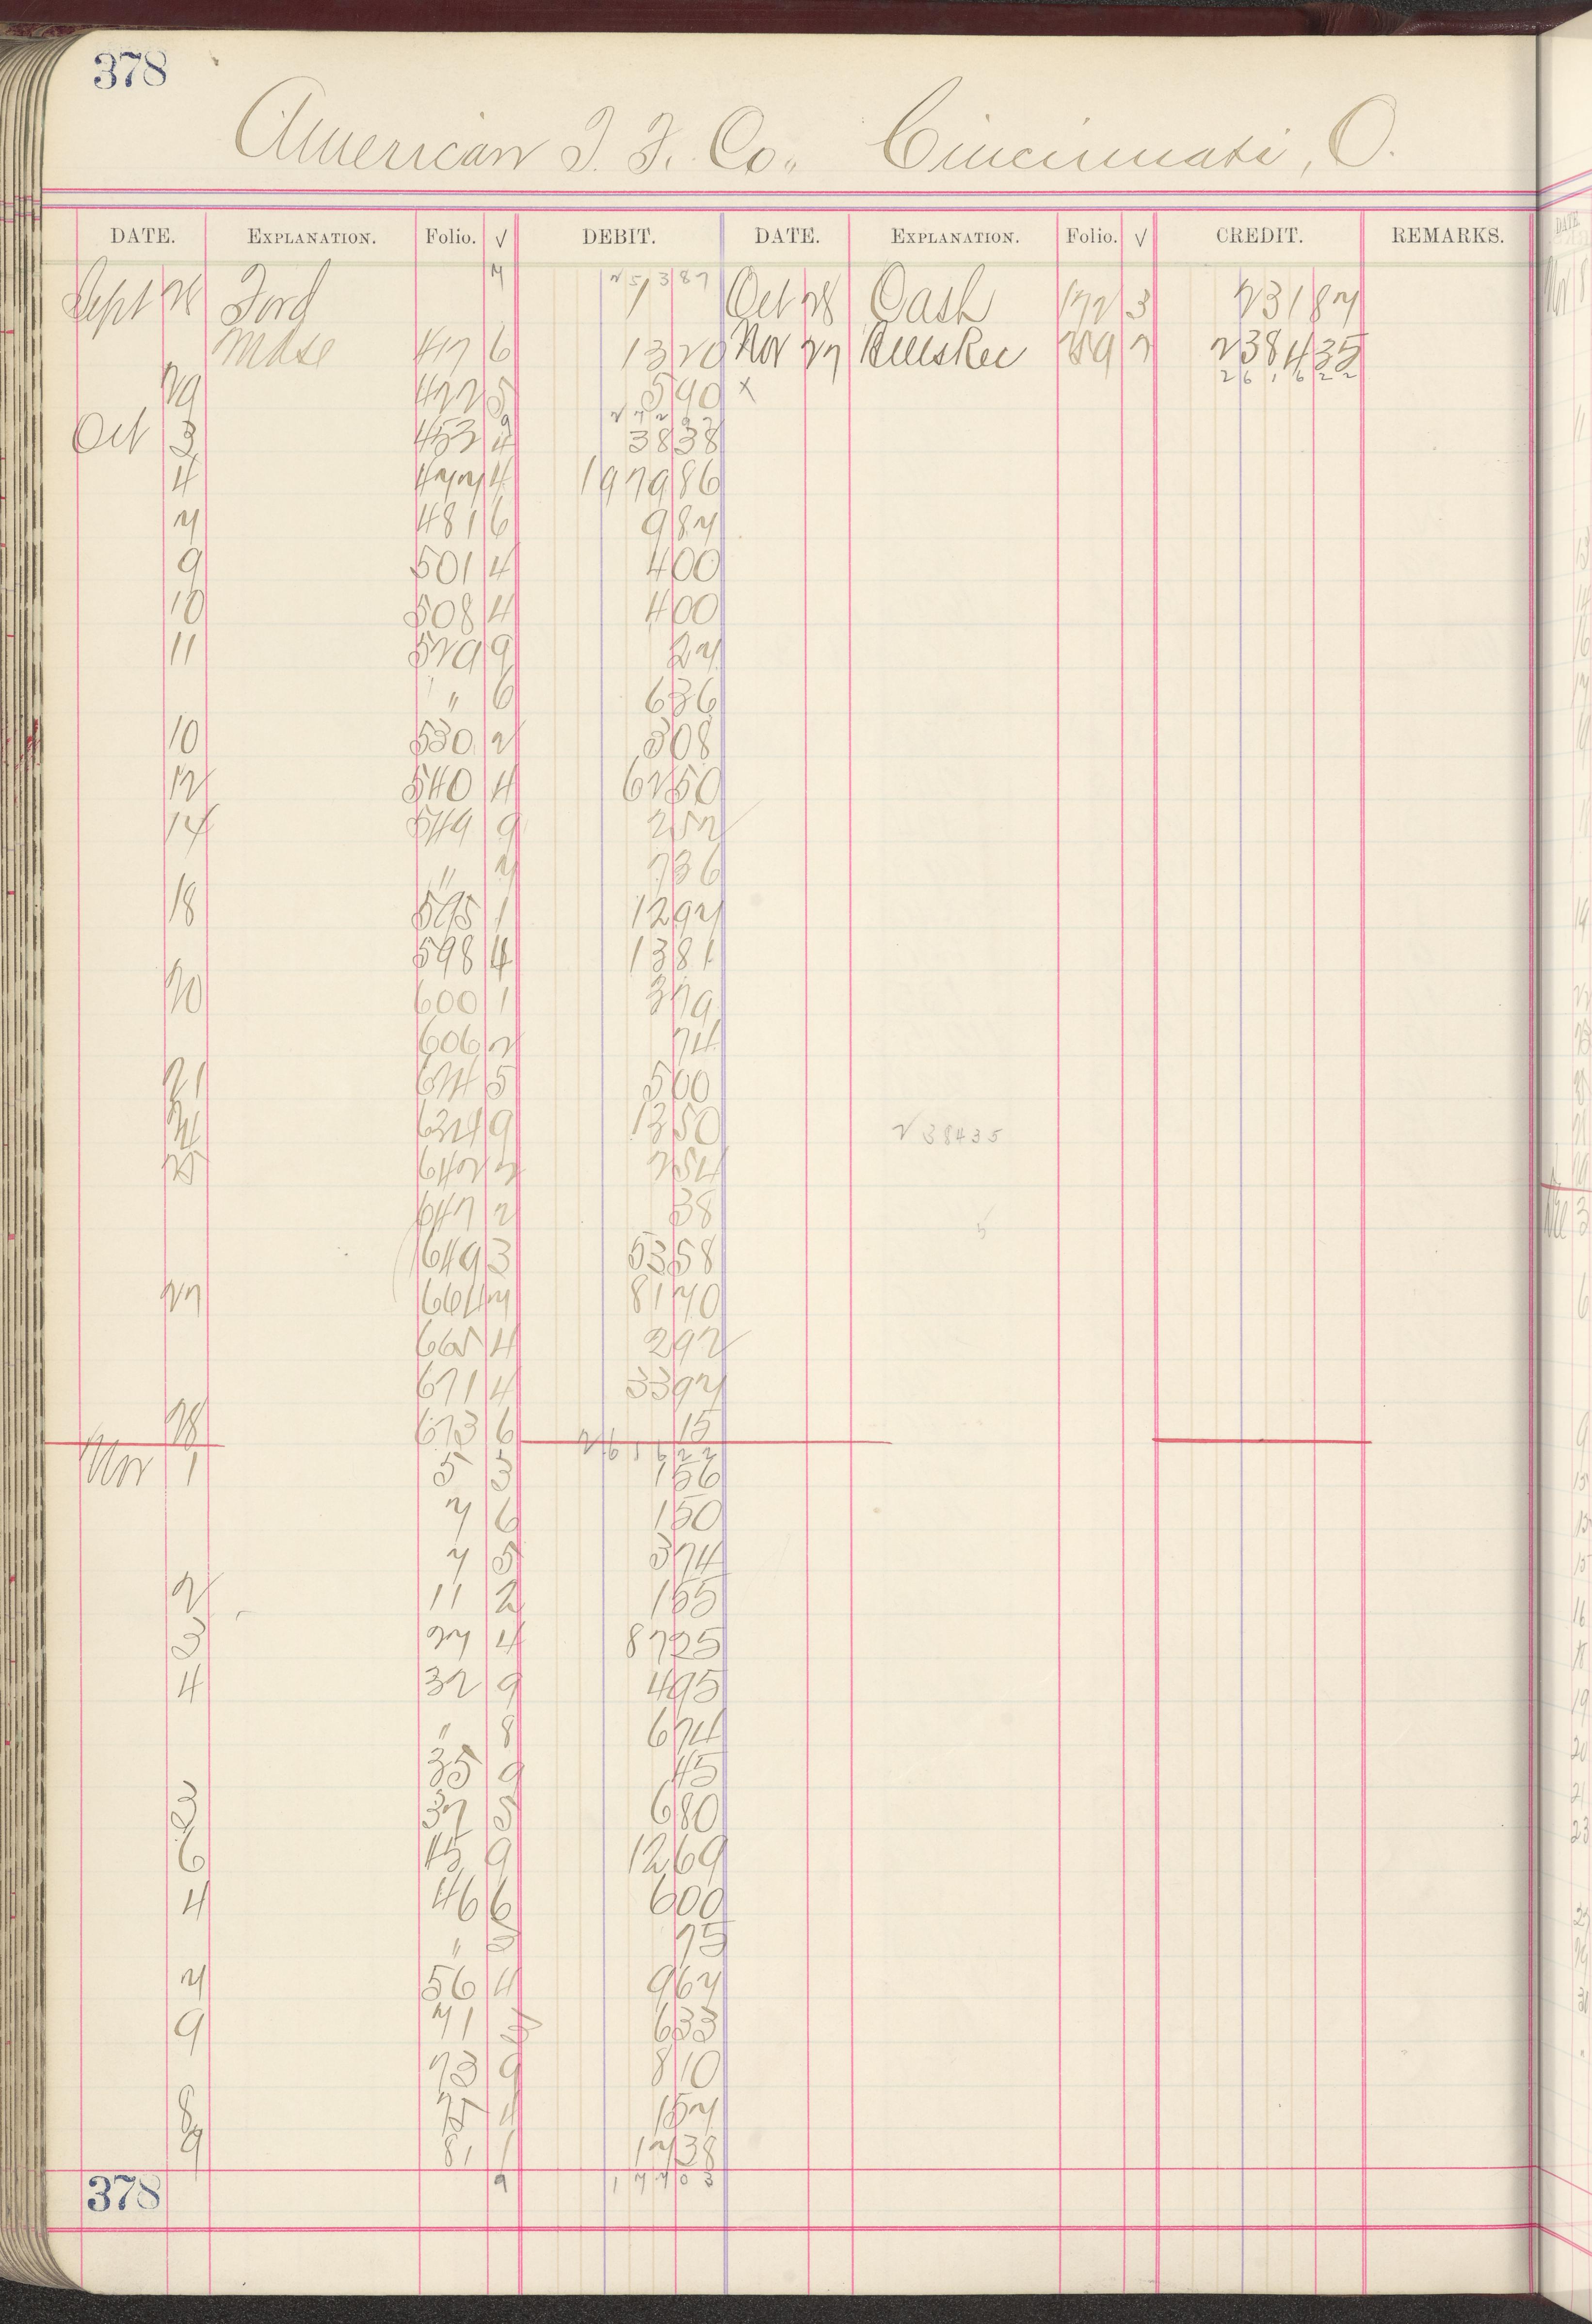 378
American F. F. Co., Cincinnati, O.
DATE. EXPLANATION. Folio. √ DEBIT. DATE. EXPLANATION. Folio. √ CREDIT. REMARKS.
Sept 28 Ford 7 Oct 28 Cash 172 3 231 87
Mdse 417 6 13 20 Nov 27 289 7 2384 35
2 6 1 6 2 2
29 422 5 5 90 x
Oct 3 453 38 38
4 477 4 1979 86
7 481 6 9 87
9 501 4 4 00
10 508 4 4 00
11 529 9 27
" 6 6 36
10 530 2 3 08
12 540 4 62 50
14 549 9 2 52
" 7 7 36
18 595 1 12 97
598 4 13 81
20 600 1 3 79
606 2 74
21 614 5 5 00
24 634 9 13 50
238435
25 642 7 2 54
647 2 38
649 3 53 58
27 664 7 81 70
665 4 2 92
671 4 33 97
28 673 6 15
2 6 1 6 2 2
Nov 1 5 3 1 56
7 6 1 50
7 5 3 74
2 11 2 1 55
3 27 4 87 25
4 32 9 4 95
" 8 6 74
35 9 45
3 37 5 6 80
6 45 9 12 69
4 46 6 6 00
" 5 75
7 56 4 9 67
9 71 6 33
73 9 8 10
8 75 4 1 57
9 81 1 17 38
378 9 1 7 7 0 3